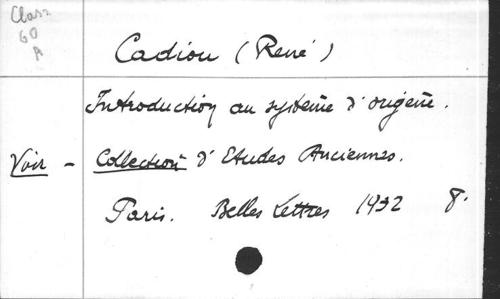 Class
60
A
Cadiou (René)
Introduction au système d'origène.
Voir - Collection d'Etudes Anciennes.
Paris. Belles Lettres 1932 8.